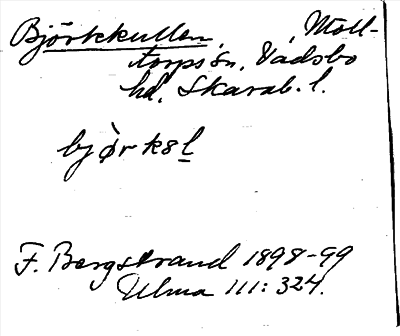 Björkkullen, Moll-
torps sn, Vadsbo
hd, Skarab. l.
bjòrk8l
F. Bergstrand 1898-99
Ulma 111: 324.